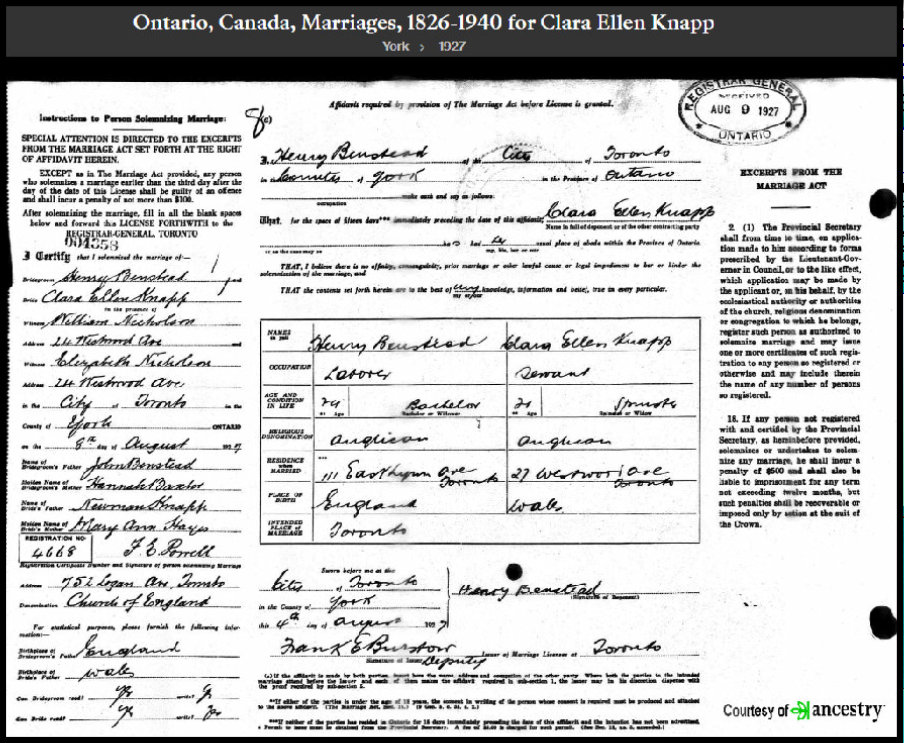 Ontario, Canada, Marriages, 1826-1940 for Clara Ellen Knapp
York > 1927
Affidavit required by provision of The Marriage Act before License is granted.
REGISTRAR GENERAL
RECEIVED
AUG 9 1927
ONTARIO
Instructions to Person Solemnizing Marriage:
SPECIAL ATTENTION IS DIRECTED TO THE EXCERPTS
FROM THE MARRIAGE ACT SET FORTH AT THE RIGHT
OF AFFIDAVIT HEREIN.
EXCEPT as in The Marriage Act provided, any person
who solemnizes a marriage earlier than the third day after the
day of the date of this License shall be guilty of an offence
and shall incur a penalty of not more than $100.
After solemnizing the marriage, fill in all the blank spaces
below and forward this LICENSE FORTHWITH to the
REGISTRAR-GENERAL, TORONTO
004358
I Certify that I solemnized the marriage of:—
Bridegroom Henry Benstead and
Bride Clara Ellen Knapp
in the presence of
Witness William Nicholson
Address 24 Westwood Ave and
Witness Elizabeth Nicholson
Address 24 Westwood Ave
in the City of Toronto in the
County of York ONTARIO
on the 8th day of August 1927
Name of Bridegroom's Father John Benstead
Maiden Name of Bridegroom's Mother Hannah
Name of Bride's Father Newman Knapp
Maiden Name of Bride's Mother Mary Ann Hayes
REGISTRATION NO.
4668 F. E. Powell
Registration Certificate Number and Signature of person solemnizing Marriage
Address 752 Logan Ave, Toronto
Denomination Church of England
For statistical purposes, please furnish the following infor-
mation:—
Birthplace of Bridegroom's Father England
Birthplace of Bride's Father Wales
Can Bridegroom read? Yes write? Yes
Can Bride read? Yes write? Yes
(c)
I, Henry Benstead of the City of Toronto
in the Counties of York in the Province of Ontario
occupation make oath and say as follows:
That, for the space of fifteen days*** immediately preceding the date of this affidavit, Clara Ellen Knapp
Name in full of deponent or of the other contracting party
usual place of abode within the Province of Ontario.
THAT, I believe there is no affinity, consanguinity, prior marriage or other lawful cause or legal impediment to bar or hinder the
solemnization of the marriage, and
THAT the contents set forth herein are to the best of my knowledge, information and belief, true in every particular.
NAMES in full Henry Benstead Clara Ellen Knapp
OCCUPATION Laborer Servant
AGE AND CONDITION IN LIFE Bachelor Spinster
Age Bachelor or Widower Age Spinster or Widow
RELIGIOUS DENOMINATION Anglican Anglican
RESIDENCE when MARRIED 111 Ave Toronto 27 Westwood Ave Toronto
PLACE OF BIRTH England Wales
INTENDED PLACE of MARRIAGE Toronto
Sworn before me at the
City of Toronto
in the County of York
this 4th day of August 1927
Henry Benstead
(Signature of Deponent)
Frank E Burstow Issuer of Marriage Licenses at Toronto
Signature of Issuer Deputy
EXCERPTS FROM THE
MARRIAGE ACT
2. (1) The Provincial Secretary
shall from time to time, on applica-
tion made to him according to forms
prescribed by the Lieutenant-Gov-
ernor in Council, or to the like effect,
which application may be made by
the applicant or, on his behalf, by the
ecclesiastical authority or authorities
of the church, religious denomination
or congregation to which he belongs,
register such person as authorized to
solemnize marriage and may issue
one or more certificates of such regis-
tration to any person so registered or
otherwise and may include therein
the name of any number of persons
so registered.
18. If any person not registered
with and certified by the Provincial
Secretary, as hereinbefore provided,
solemnizes or undertakes to solem-
nize any marriage, he shall incur a
penalty of $500 and shall also be
liable to imprisonment for any term
not exceeding twelve months, but
such penalties shall be recoverable or
imposed only by action at the suit of
the Crown.
Courtesy of ancestry